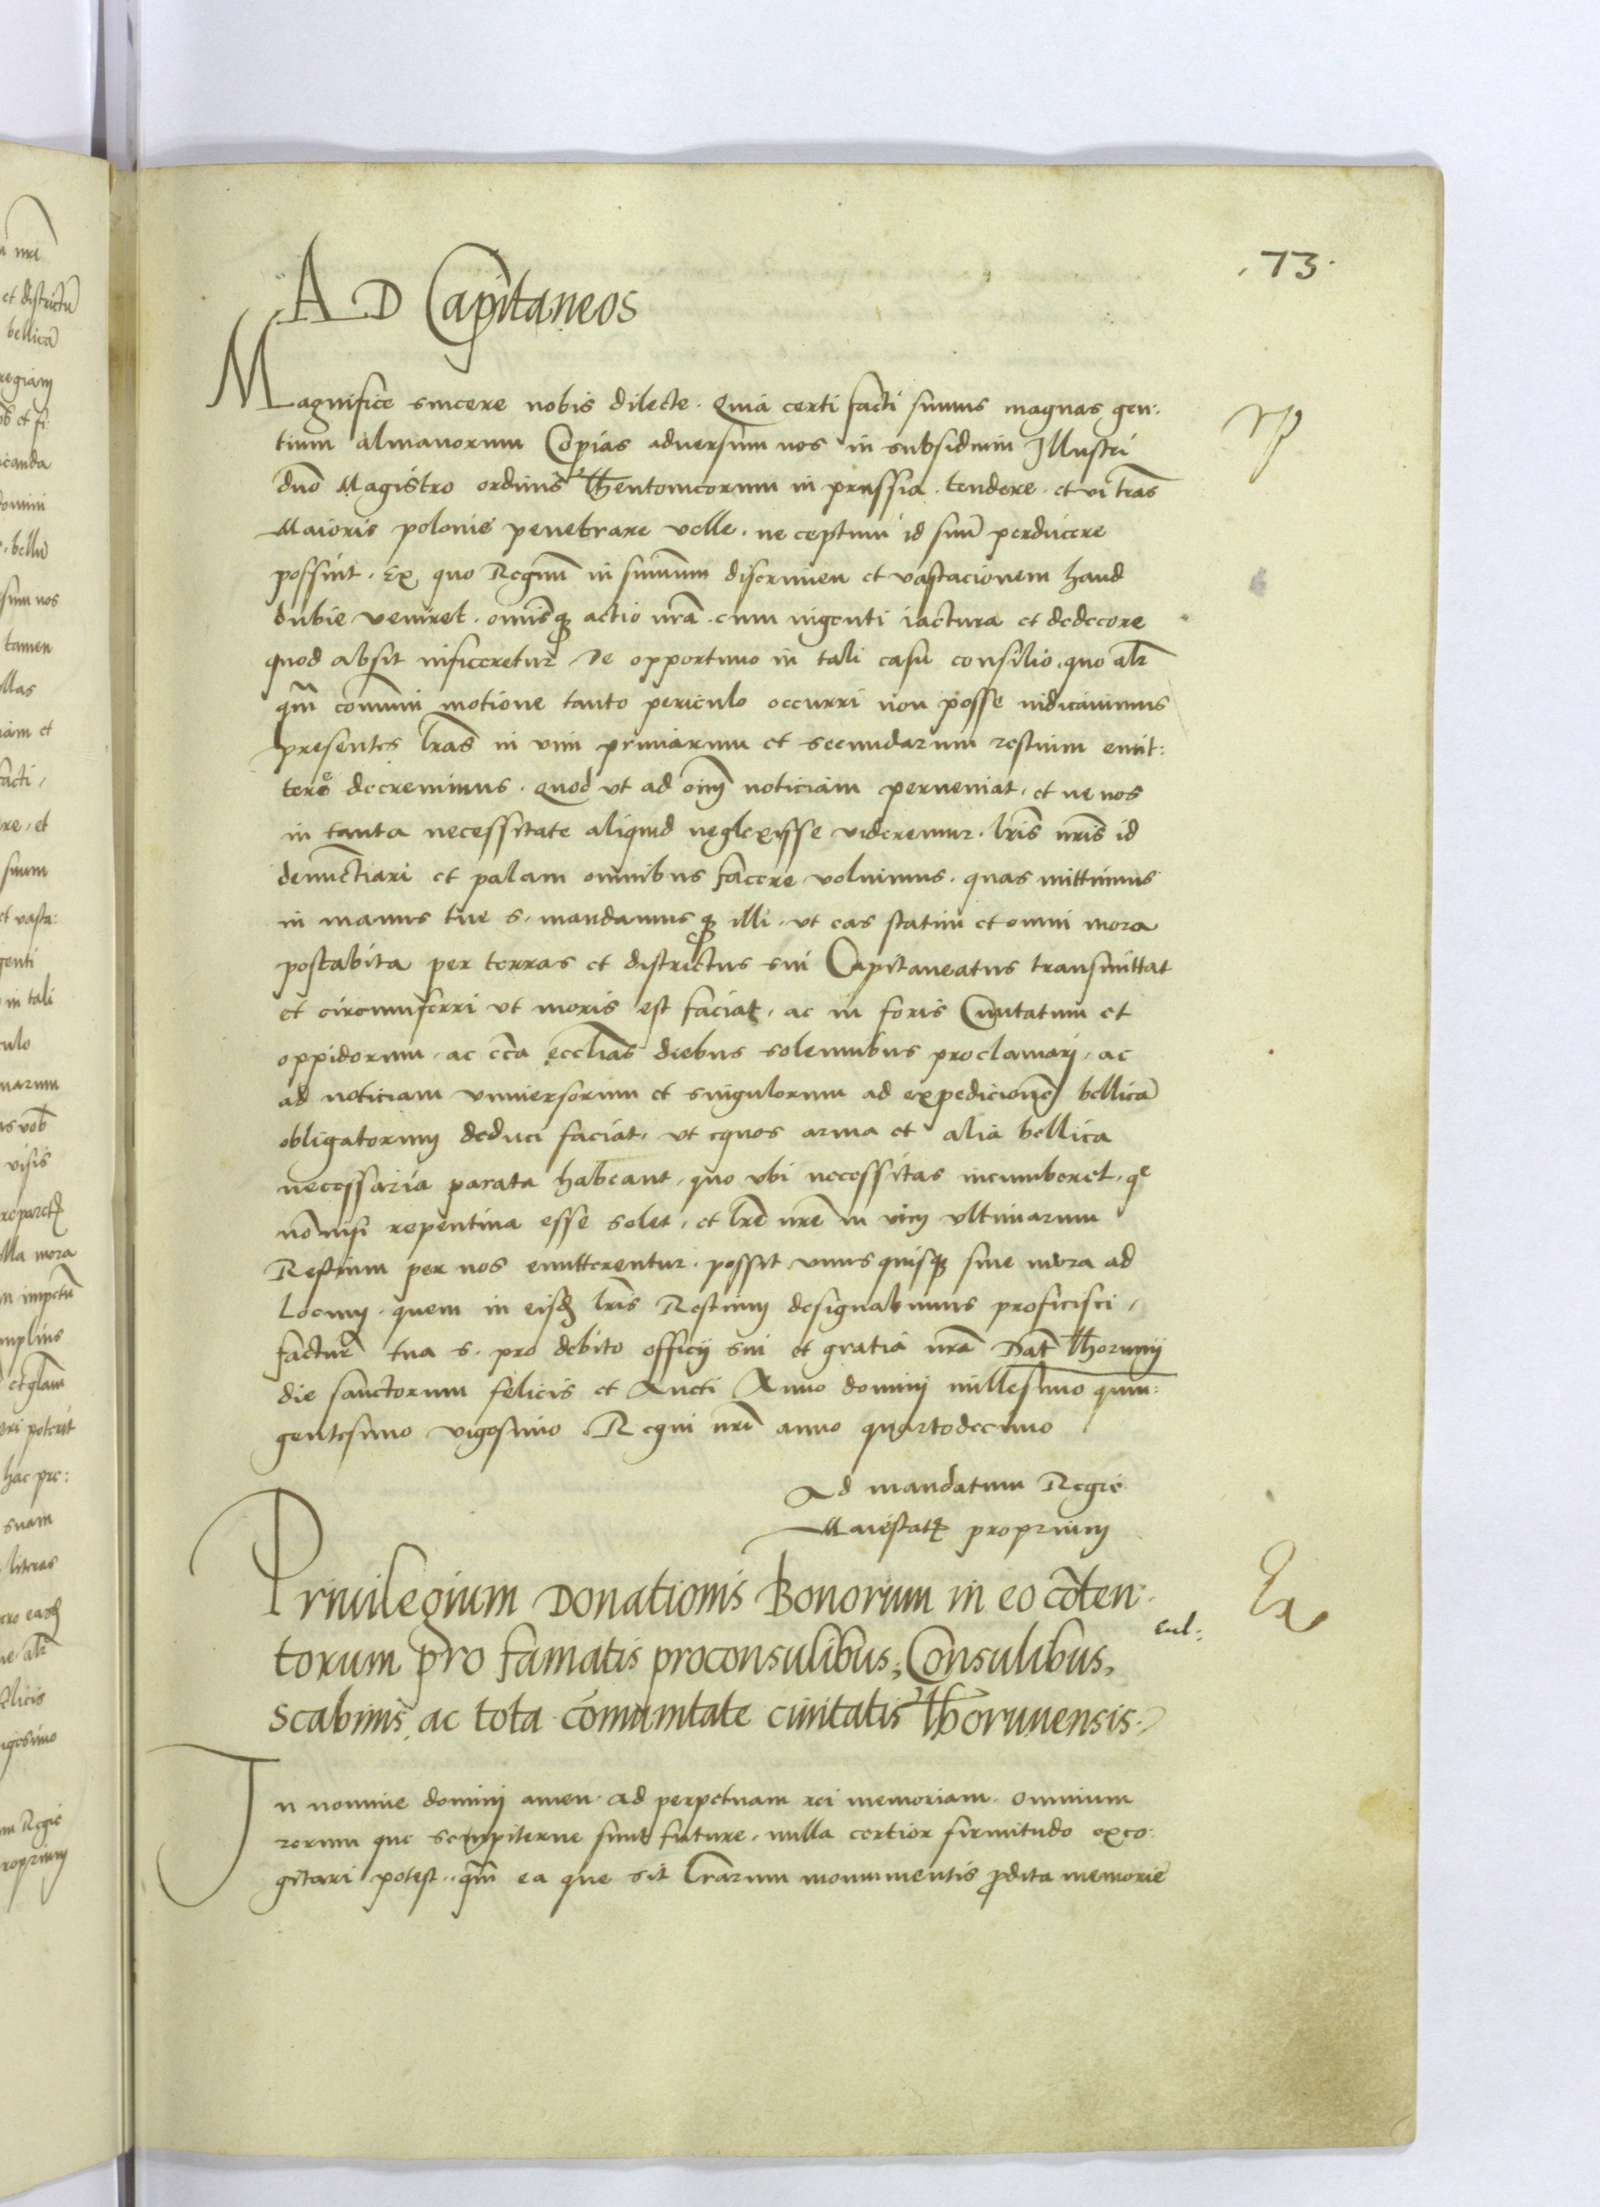 .73.
AD Capitaneos
Magnifice sincere nobis dilecte. Quia certi facti sumus magnas gen:
tium almanorum Copias adversum nos in subsidium Illustri
dno Magistro ordinis Theutonicorum in prussia. tendere. et vi tras
Maioris polonie penetrare velle. ne ceptum id suu perducere
possint. Ex quo Regnu in summum discrimen et vastacionem haud
dubie veniret. omnisq actio nra. cum ingenti iactura et dedecore
quod absit inficeretur De opportuno in tali casu consilio. quo alr
qm comuni motione tanto periculo occurri non posse iudicavimus
presentes lras in vim primarum et secundarum restium emit:
tere decrevimus. Quod ut ad oim noticiam perveniat. et ne nos
in tanta necessitate aliquid neglexisse videremur. lris nris id
denunctiari et palam omnibus facere voluimus. quas mittimus
in manus tue s. mandamusq illi. ut eas statim et omni mora
postabita per terras et districtus sui Capitaneatus transmittat
et circumferri ut moris est faciat. ac in foris Civitatum et
oppidorum. ac cca ecclias diebus solemnibus proclamari. ac
ad noticiam universorum et singulorum ad expedicione bellica
obligatorum deduci faciat. ut equos arma et alia bellica
necessaria parata habeant. quo ubi necessitas incumberet. qe
no nisi repentina esse solet. et lre nre in vim ultimarum
Restium per nos emitterentur. possit unusquisq sine mora ad
Locum. quem in eisd lris Restium designabimus proficisci.
factur tua s. pro debito officij sui et gratia nra Dat Thorunij
die sanctorum felicis et Aucti Anno domini millesimo quin:
gentesimo vigesimo Regni nri anno quartodecimo
Ad mandatum Regie
Maiestat proprium
Privilegium Donationis Bonorum in eo coten:
torum pro famatis proconsulibus, Consulibus,
Scabinis, ac tota comunitate civitatis Thorunensis.
In nomine domini amen. ad perpetuam rei memoriam. omnium
rerum que sempiterne sunt future. nulla certior firmitudo exco:
gitari potest. qm ea que sit lrarum monumentis pdita memorie